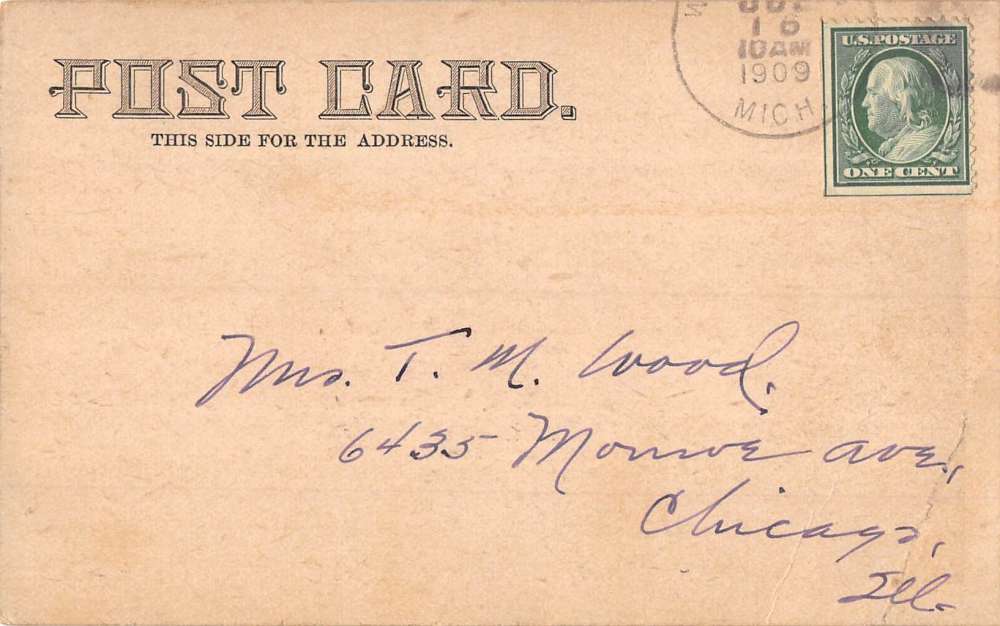 POST CARD.
THIS SIDE FOR THE ADDRESS.
16
10AM
1909
MICH
U.S.POSTAGE
ONE CENT
Mrs. T. M. Wood.
6435 Monroe ave.,
Chicago,
Ill.